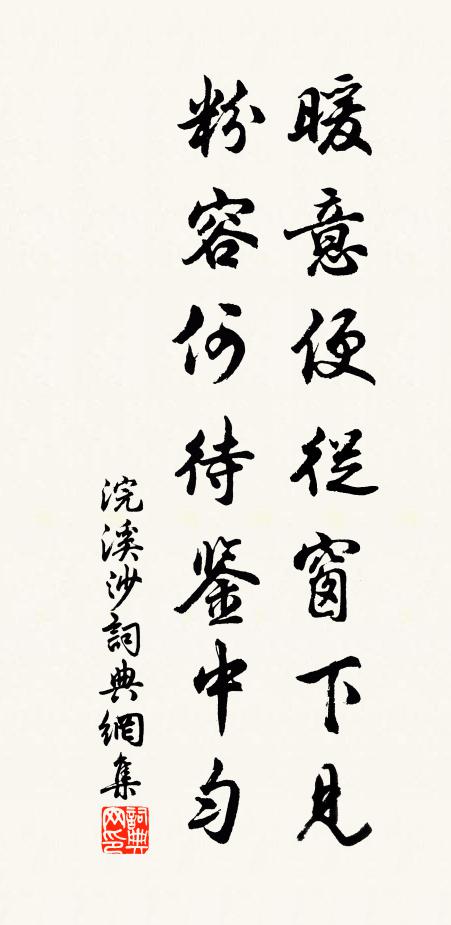 暖意便從窗下見
粉容何待鑒中勻
浣溪沙詞典網集
詞典網印